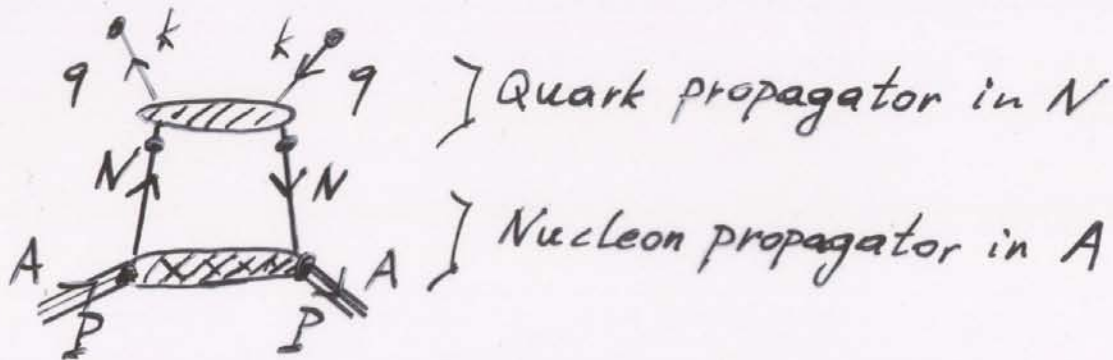 k k
q q
} Quark propagator in N
N N
} Nucleon propagator in A
A A
P P